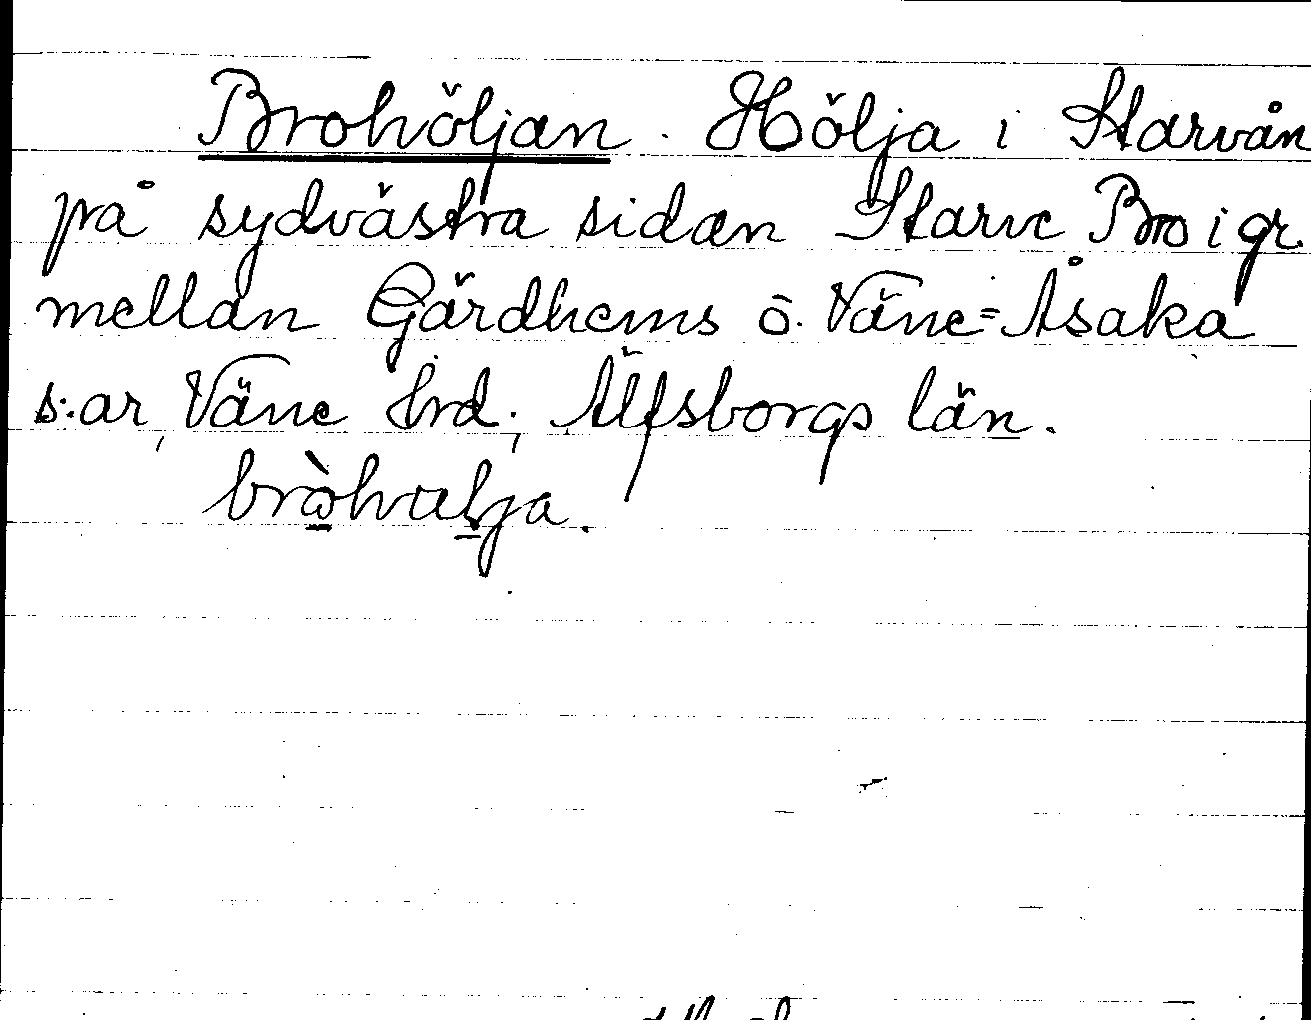 Brohöljan. Hölja i Starvån
på sydvästra sidan Starve Bro i gr.
mellan Gärdhems o. Väne=Åsaka
s:ar, Väne hrd; Älfsborgs län.